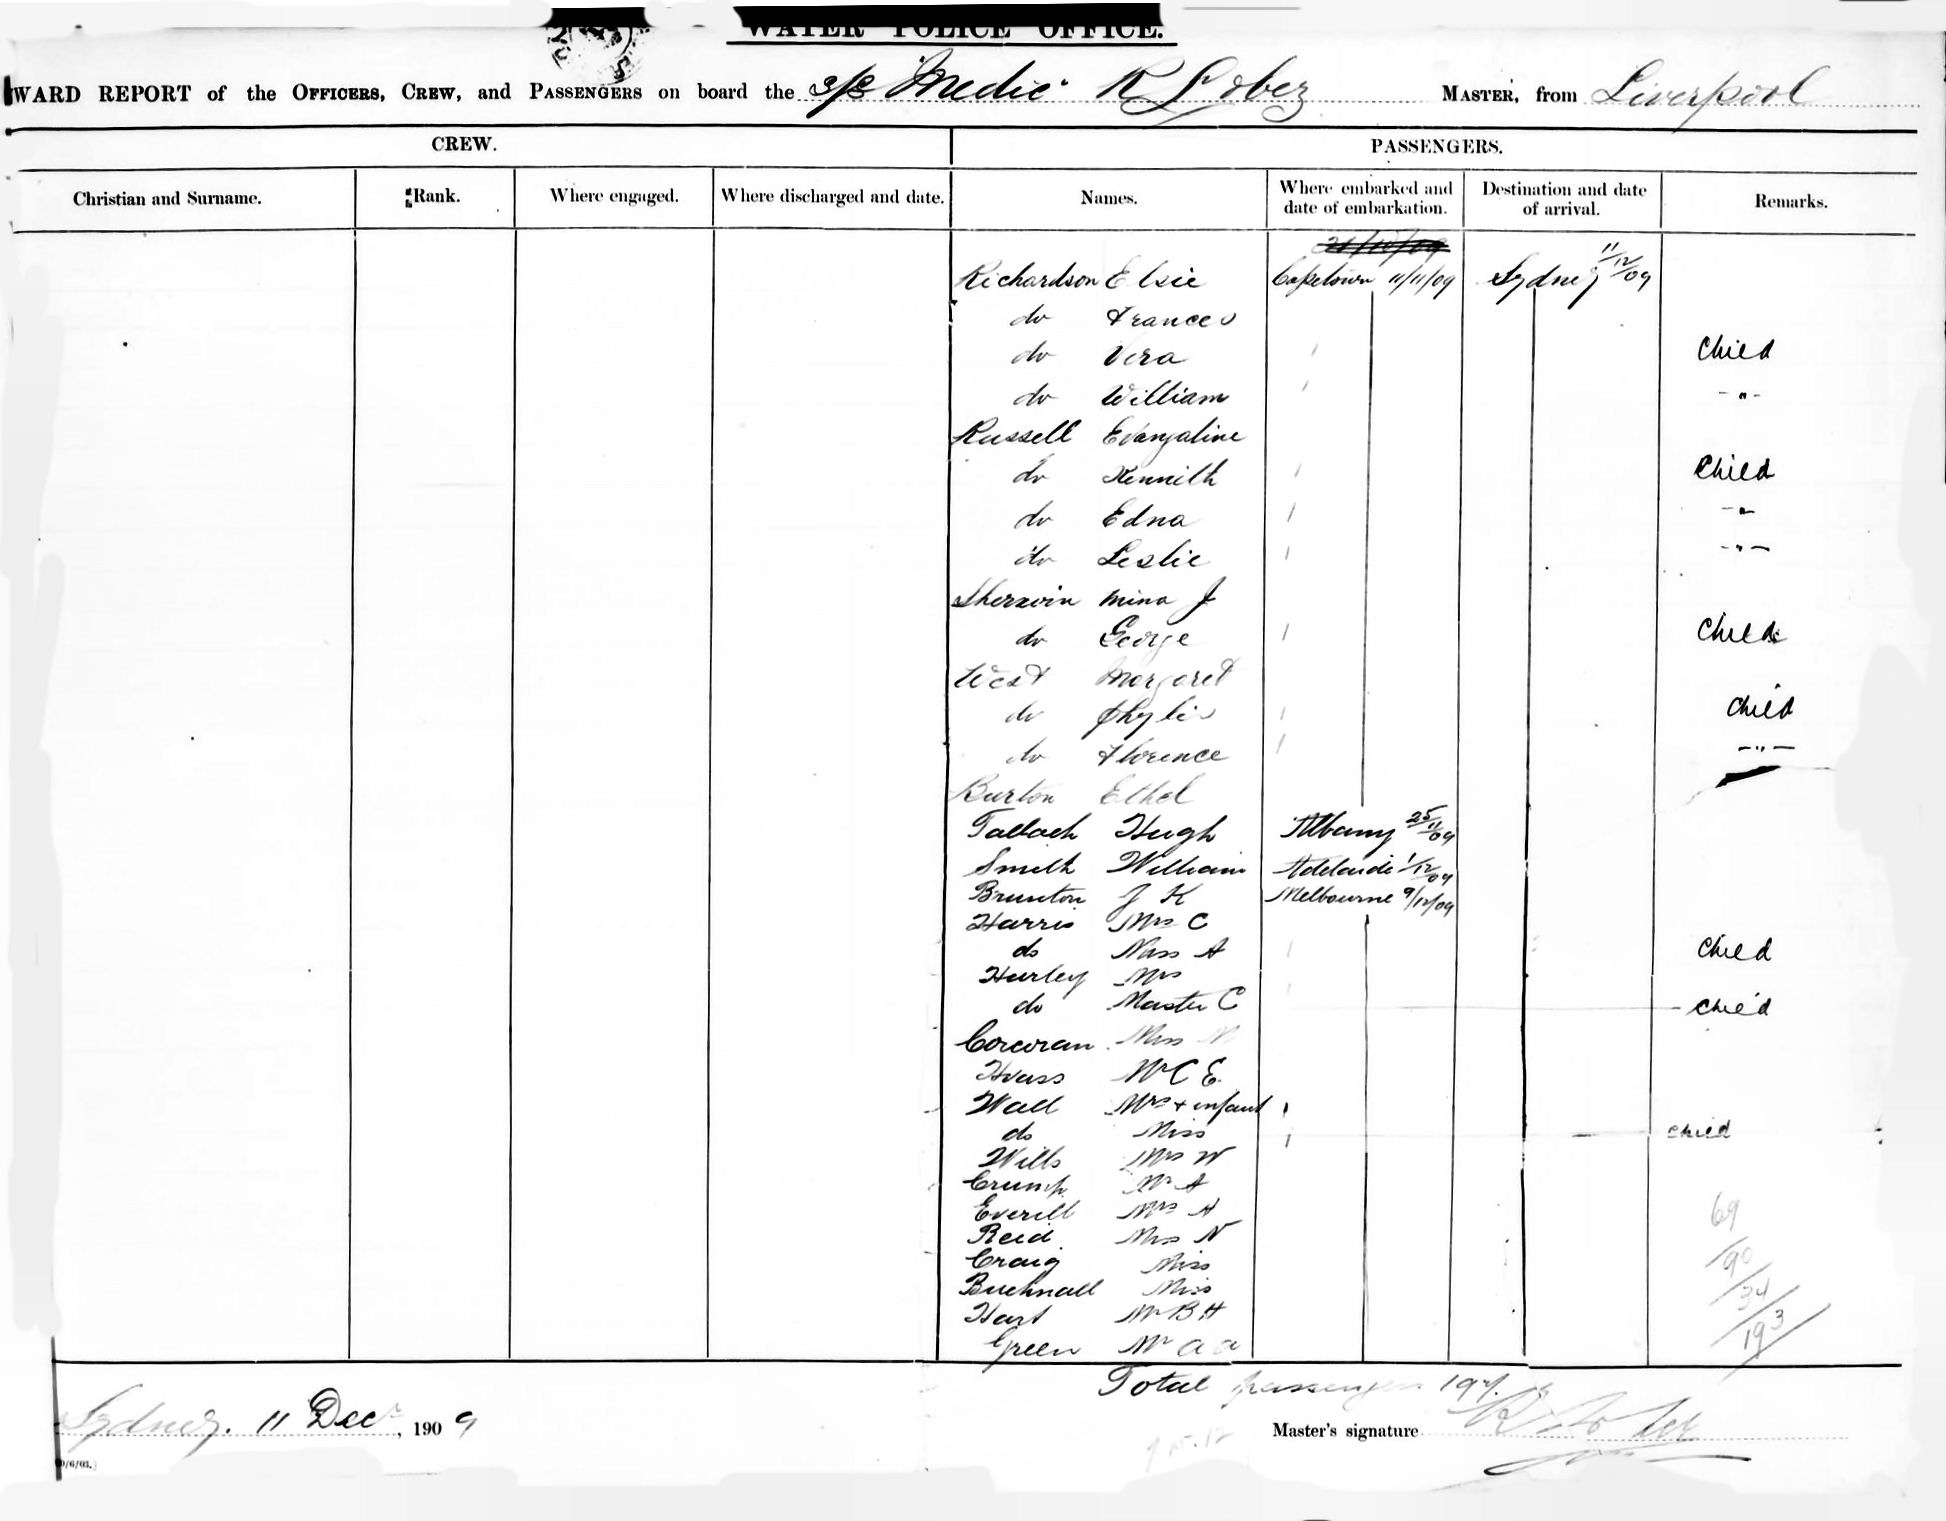 WATER POLICE OFFICE.
WARD REPORT of the OFFICERS, CREW, and PASSENGERS on board the s/s "Medic" R MASTER, from Liverpool
CREW. PASSENGERS.
Christian and Surname. Rank. Where engaged. Where discharged and date. Names. Where embarked and date of embarkation. Destination and date of arrival. Remarks.
Richardson Elsie Capetown 11/11/09 Sydney 11/12/09
do Frances
do Vera Child
do William - " -
Russell Evangaline
do Kennith Child
do Edna - " -
do Leslie - " -
Sherwin Mina J
do George Child
West Margaret
do Phylis Child
do Florence - " -
Burton Ethel
Tallach Hugh Albany 25/11/09
Smith William Adelaide 1/12/09
Brunton J K Melbourne 9/12/09
Harris Mrs C
do Miss A Child
Hurley Mrs
do Master C Child
Corcoran Miss
Hvass Mr C E
Wall Mrs + infant
do Miss Child
Wills Mrs W
Crump Mr A
Everill Mrs A
Reid Miss N
Craig Miss
Bucknall Miss
Hart Mr B H
Green Mr A A
69
90
34
193
Total passengers
Sydney. 11 Decr, 1909 Master's signature